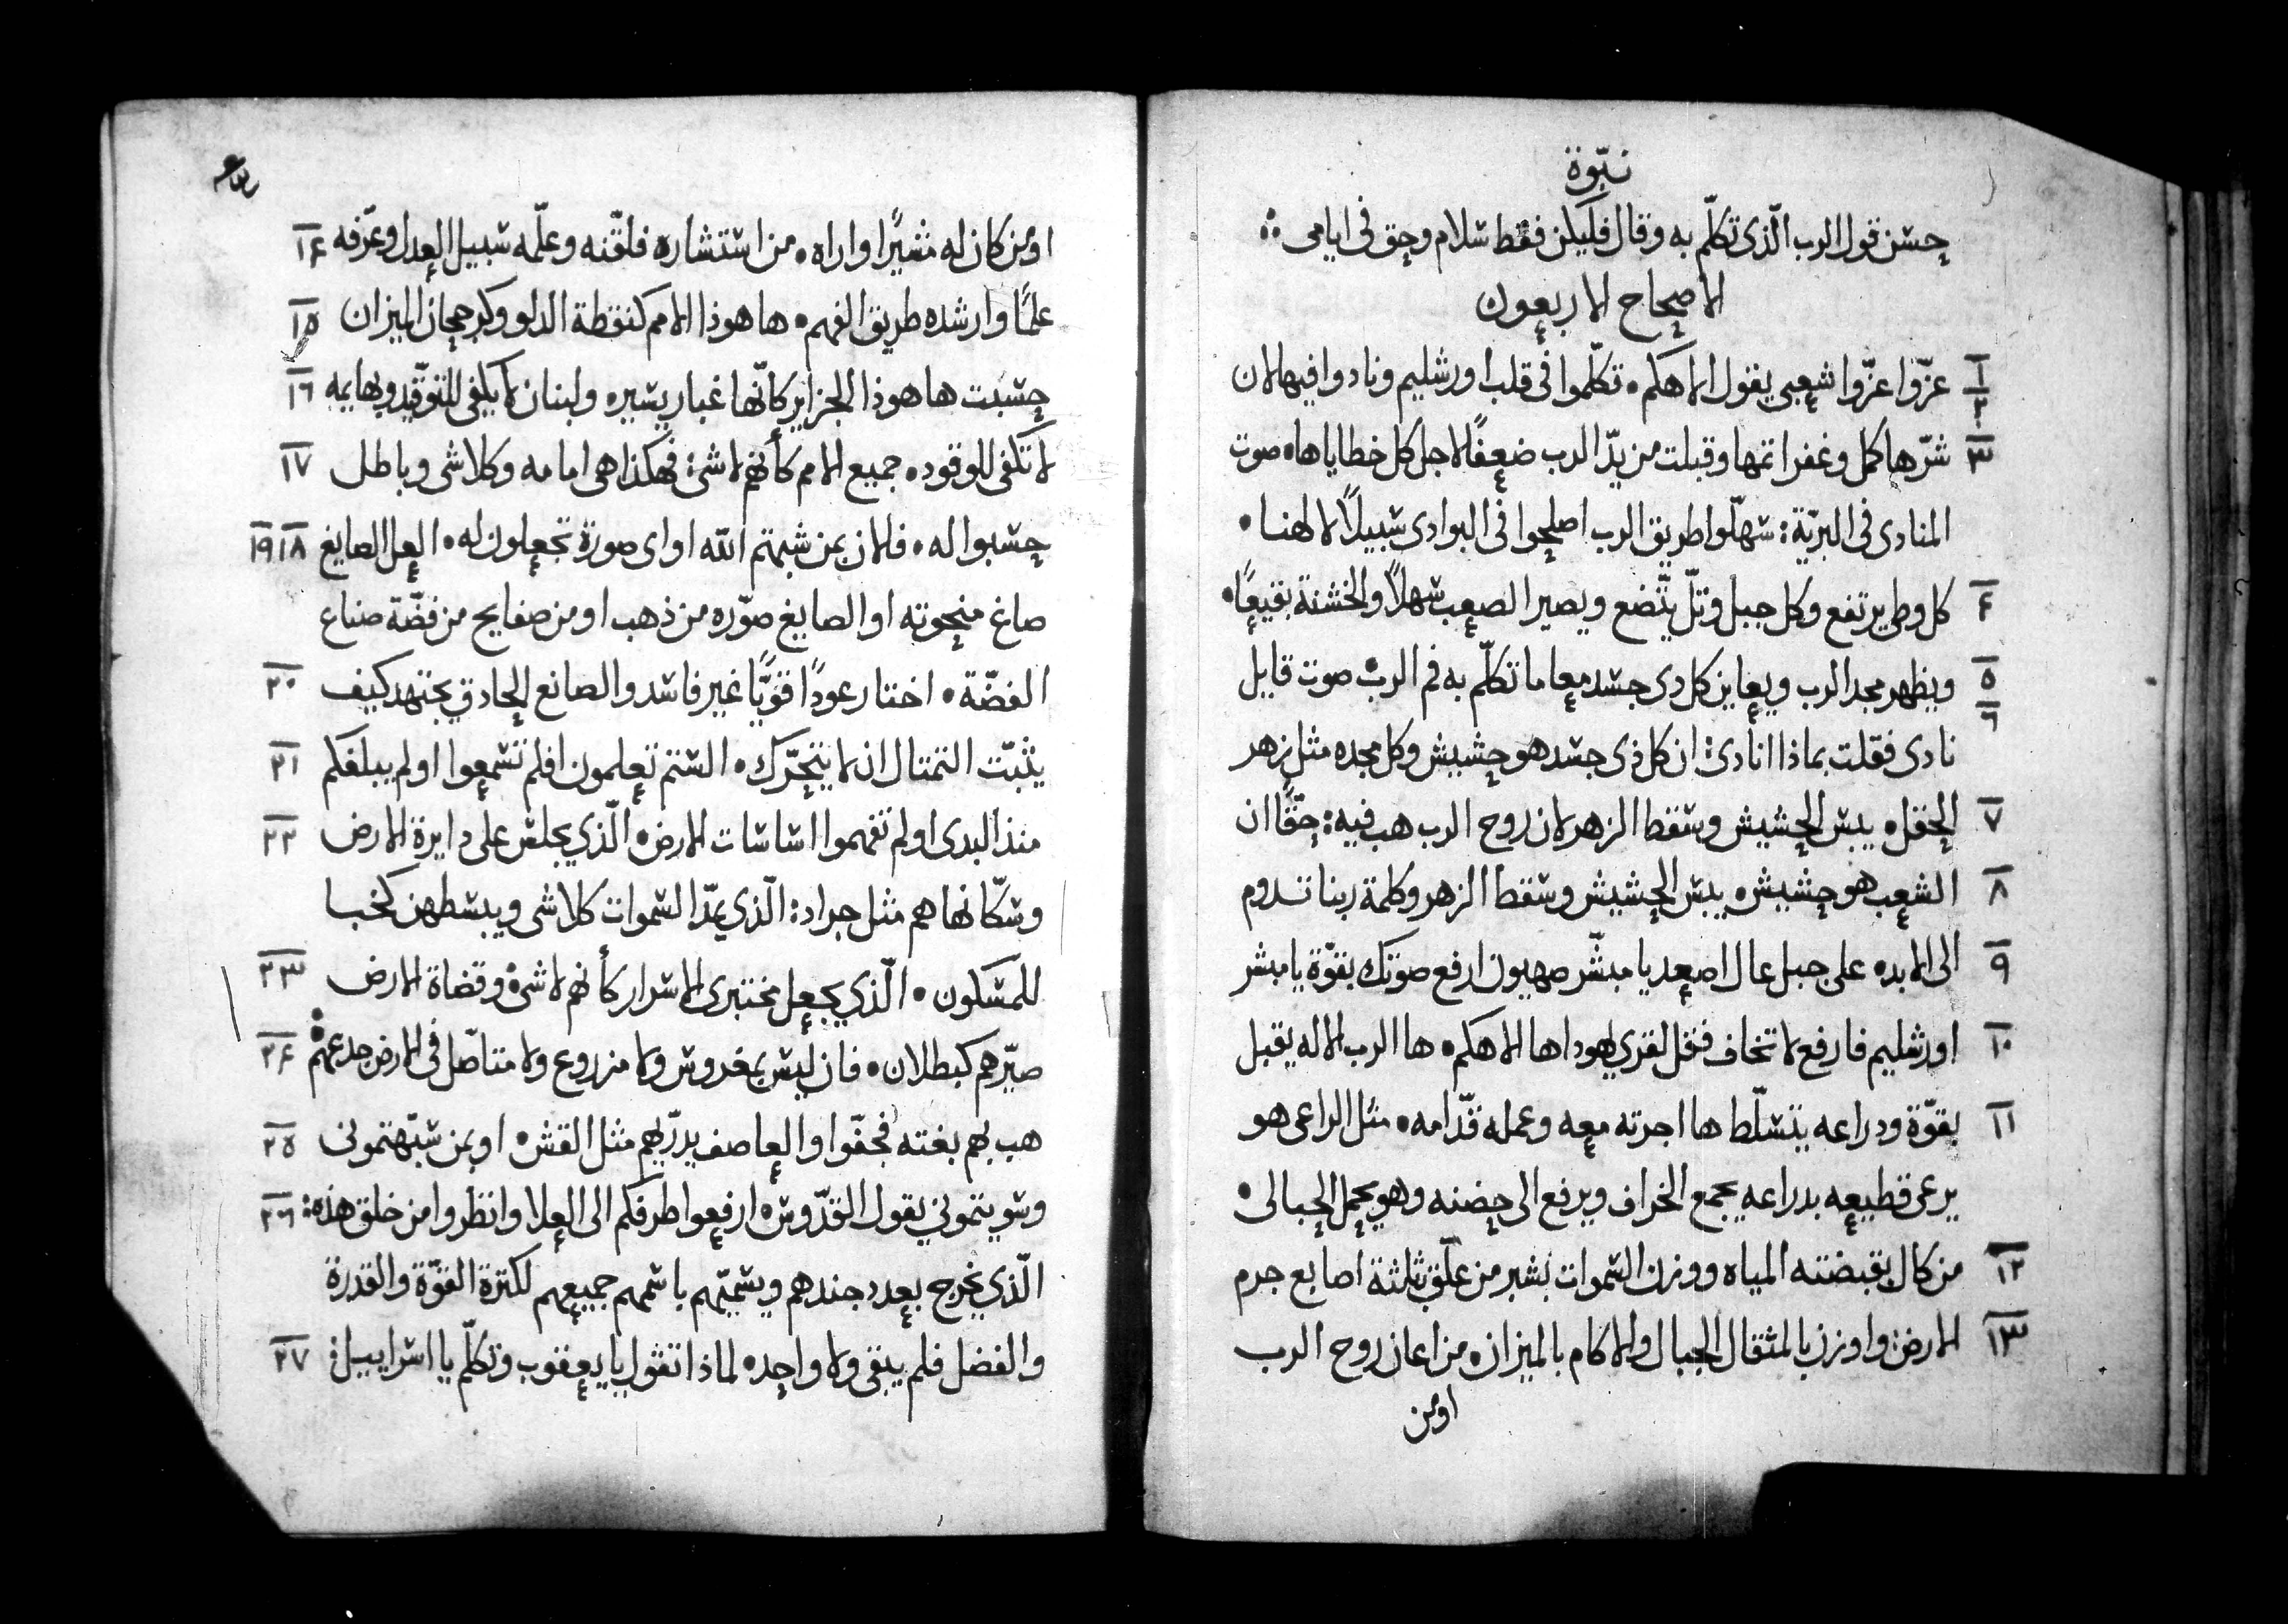 نبّوة
حسن قول الرب الّذى تكلّم به وقال فليكن فقط سلام وحق فى ايامى
الاصحاح الاربعون
١ ٢ عزّوا عزّوا شعبى يقول الاهكم. تكلّموا فى قلب اورشليم ونادوا فيها لان
٣ شرّها كمل وغفر اتمها وقبلت من يدّ الرب ضعفًا لاجل كل خطاياها. صوت
المنادى فى البريّة: سهلّوا طريق الرب اصلحوا فى البوادى سبيلاً لالهنا.
٤ كل وطى يرتفع وكل جبل وتلّ يتّضع ويصير الصعب سهلاً والخشنة بقيعًا.
٥ ٦ ويظهر مجد الرب ويعاين كل دى جسد معا ما تكلّم به فم الرب. صوت قايل
نادى فقلت بماذا انادى: ان كل ذى جسد هو حشيش وكل مجده مثل زهر
٧ الحقل. يبس الحشيش وسقط الزهر لان روح الرب هب فيه: حقًّا ان
٨ الشعب هو حشيش. يبس الحشيش وسقط الزهر وكلمة ربنا تدوم
٩ الى الابد. على جبل عال اصعد يا مبشّر صهيون ارفع صوتك بقوّة يا مبشر
١٠ اورشليم فارفع لا تخاف فقل لقرى يهودا ها الاهكم. ها الرب الاله يقبل
١١ بقوّة ودراعه يتسلّط ها اجرته معه وعمله قدّامه. مثل الراعى هو
يرعى قطيعه بدراعه يجمع الخراف ويرفع الى حضنه وهو يحمل الحبالى.
١٢ من كال بقبضته المياه ووزن السموات بشبر من علّق بثلثة اصابع جرم
١٣ الارض: واوزن بالمثقال الجبال والاكام بالميزان. من اعان روح الرب
اومن
١٤ اومن كان له مشيرًا واراه. من استشاره فلقّنه وعلّمه سبيل العدل وعرّفه
١٥ علمًا وارشده طريق الفهم. ها هوذا الامم كنقطة الدلو وكرجحان الميزان
١٦ حسبت ها هوذا الجزاير كانّها غبار يسيره ولبنان لا يكفى للتوقّيد وبهايمه
١٧ لا تكفى للوقود. جميع الامم كأنهم لا شئ: فهكذا هى امامه وكلاشى وباطل
١٨ ١٩ حسبوا له. فلان بمن شبهتم الله او اى صورة تجعلون له. العل الصايغ
صاغ منحوته او الصايغ صوّره من ذهب او من صفايح من فضّة صناع
٢٠ الفضّة. اختار عودًا قوّيًا غير فاسد والصانع الحادق يجتهد كيف
٢١ يثبّت التمتال ان لا يتحرّك. الستم تعلمون افلم تسمعوا اولم يبلغكم
٢٢ منذ البدى اولم تفهموا اساسات الارض. الّذي يجلس على دايرة الارض
وسكّانها هم مثل جراد: الّذي يمدّ السموات كلاشى ويبسطهن كخبا
٢٣ للمسكون. الّذي يجعل مختبرى الاسرار كأنهم لا شئ وقضاة الارض
٢٤ صيّرهم كبطلان. فان ليس بمغروس ولا مزروع ولا متاصّل فى الارض جدعهم
٢٥ هب بهم بغته فجفّوا والعاصف يدرّيهم مثل القش. اوبمن شبّهتمونى
٢٦ وسويتموني يقول القدّوس. ارفعوا طرفكم الى العلا وانظروا من خلق هذه:
الّذي يخرج بعدد جندهم ويسميّهم باسمهم جميعهم لكترة القوّة والقدرة
٢٧ والفضل فلم يبقى ولا واحد. لماذا تقول يا يعقوب وتكلّم يا اسراييل: